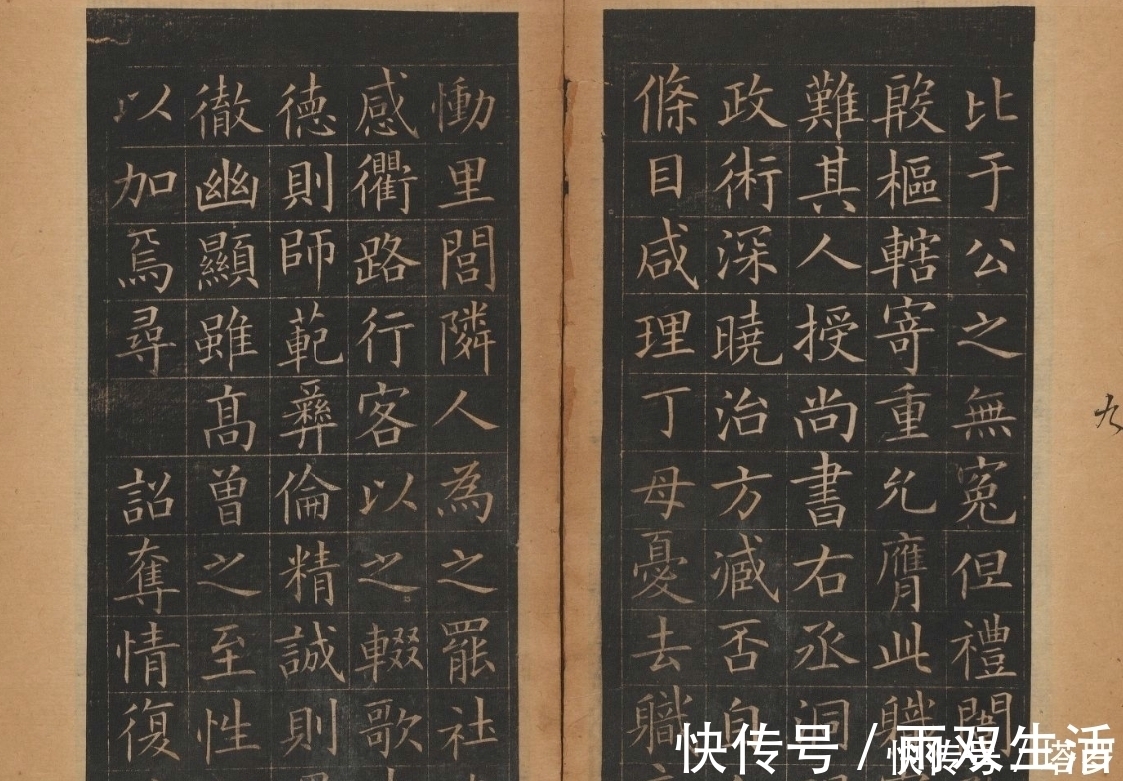 比于公之無寃但禮闈
殷樞轄寄重允膺此職
難其人授尚書右丞洞
政術深曉治方臧否自
條目咸理丁母憂去職
慟里閭隣人為之罷社
感衢路行客以之輟歌
徳則師範彝倫精誠則
徹幽顯雖髙曾之至性
以加焉尋 詔奪情復
九
快传号 / 雨双生活
快传号